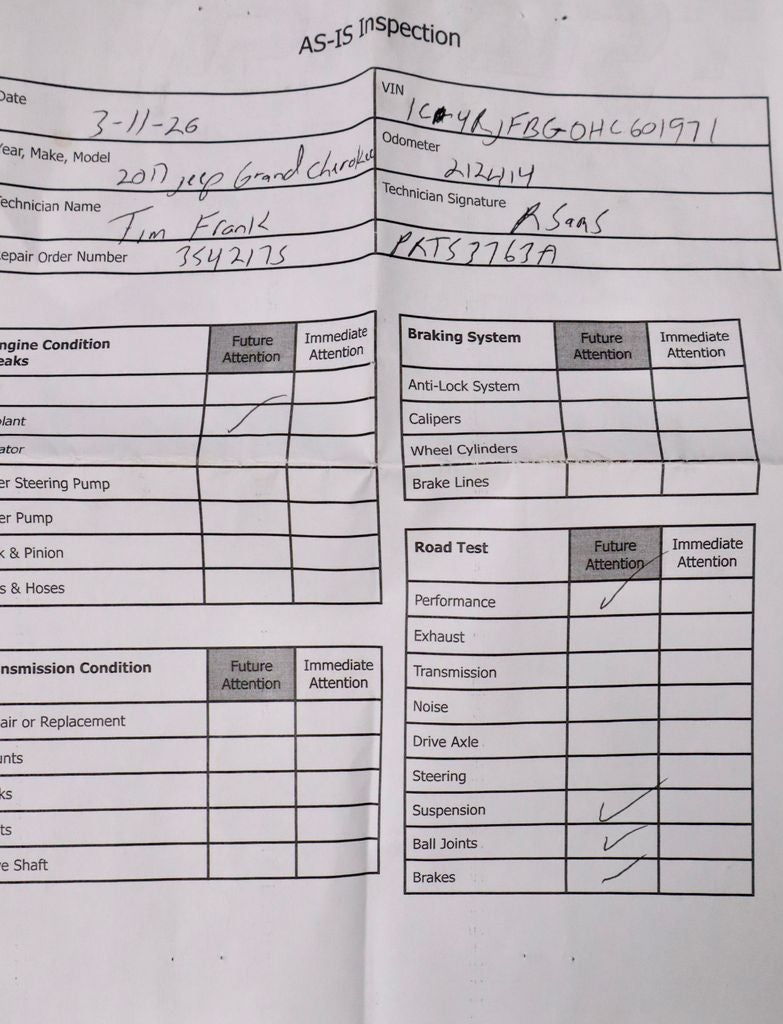 AS-IS Inspection
Date 3-11-26
VIN
ear, Make, Model 2017 Jeep Grand Cherokee
Odometer 212414
echnician Name Tim Frank
Technician Signature
epair Order Number 3542175
PKTS3763A
ngine Condition
eaks
Future Attention
Immediate Attention
lant
ator
er Steering Pump
er Pump
k & Pinion
s & Hoses
nsmission Condition
Future Attention
Immediate Attention
air or Replacement
unts
ks
ts
e Shaft
Braking System
Future Attention
Immediate Attention
Anti-Lock System
Calipers
Wheel Cylinders
Brake Lines
Road Test
Future Attention
Immediate Attention
Performance
Exhaust
Transmission
Noise
Drive Axle
Steering
Suspension
Ball Joints
Brakes